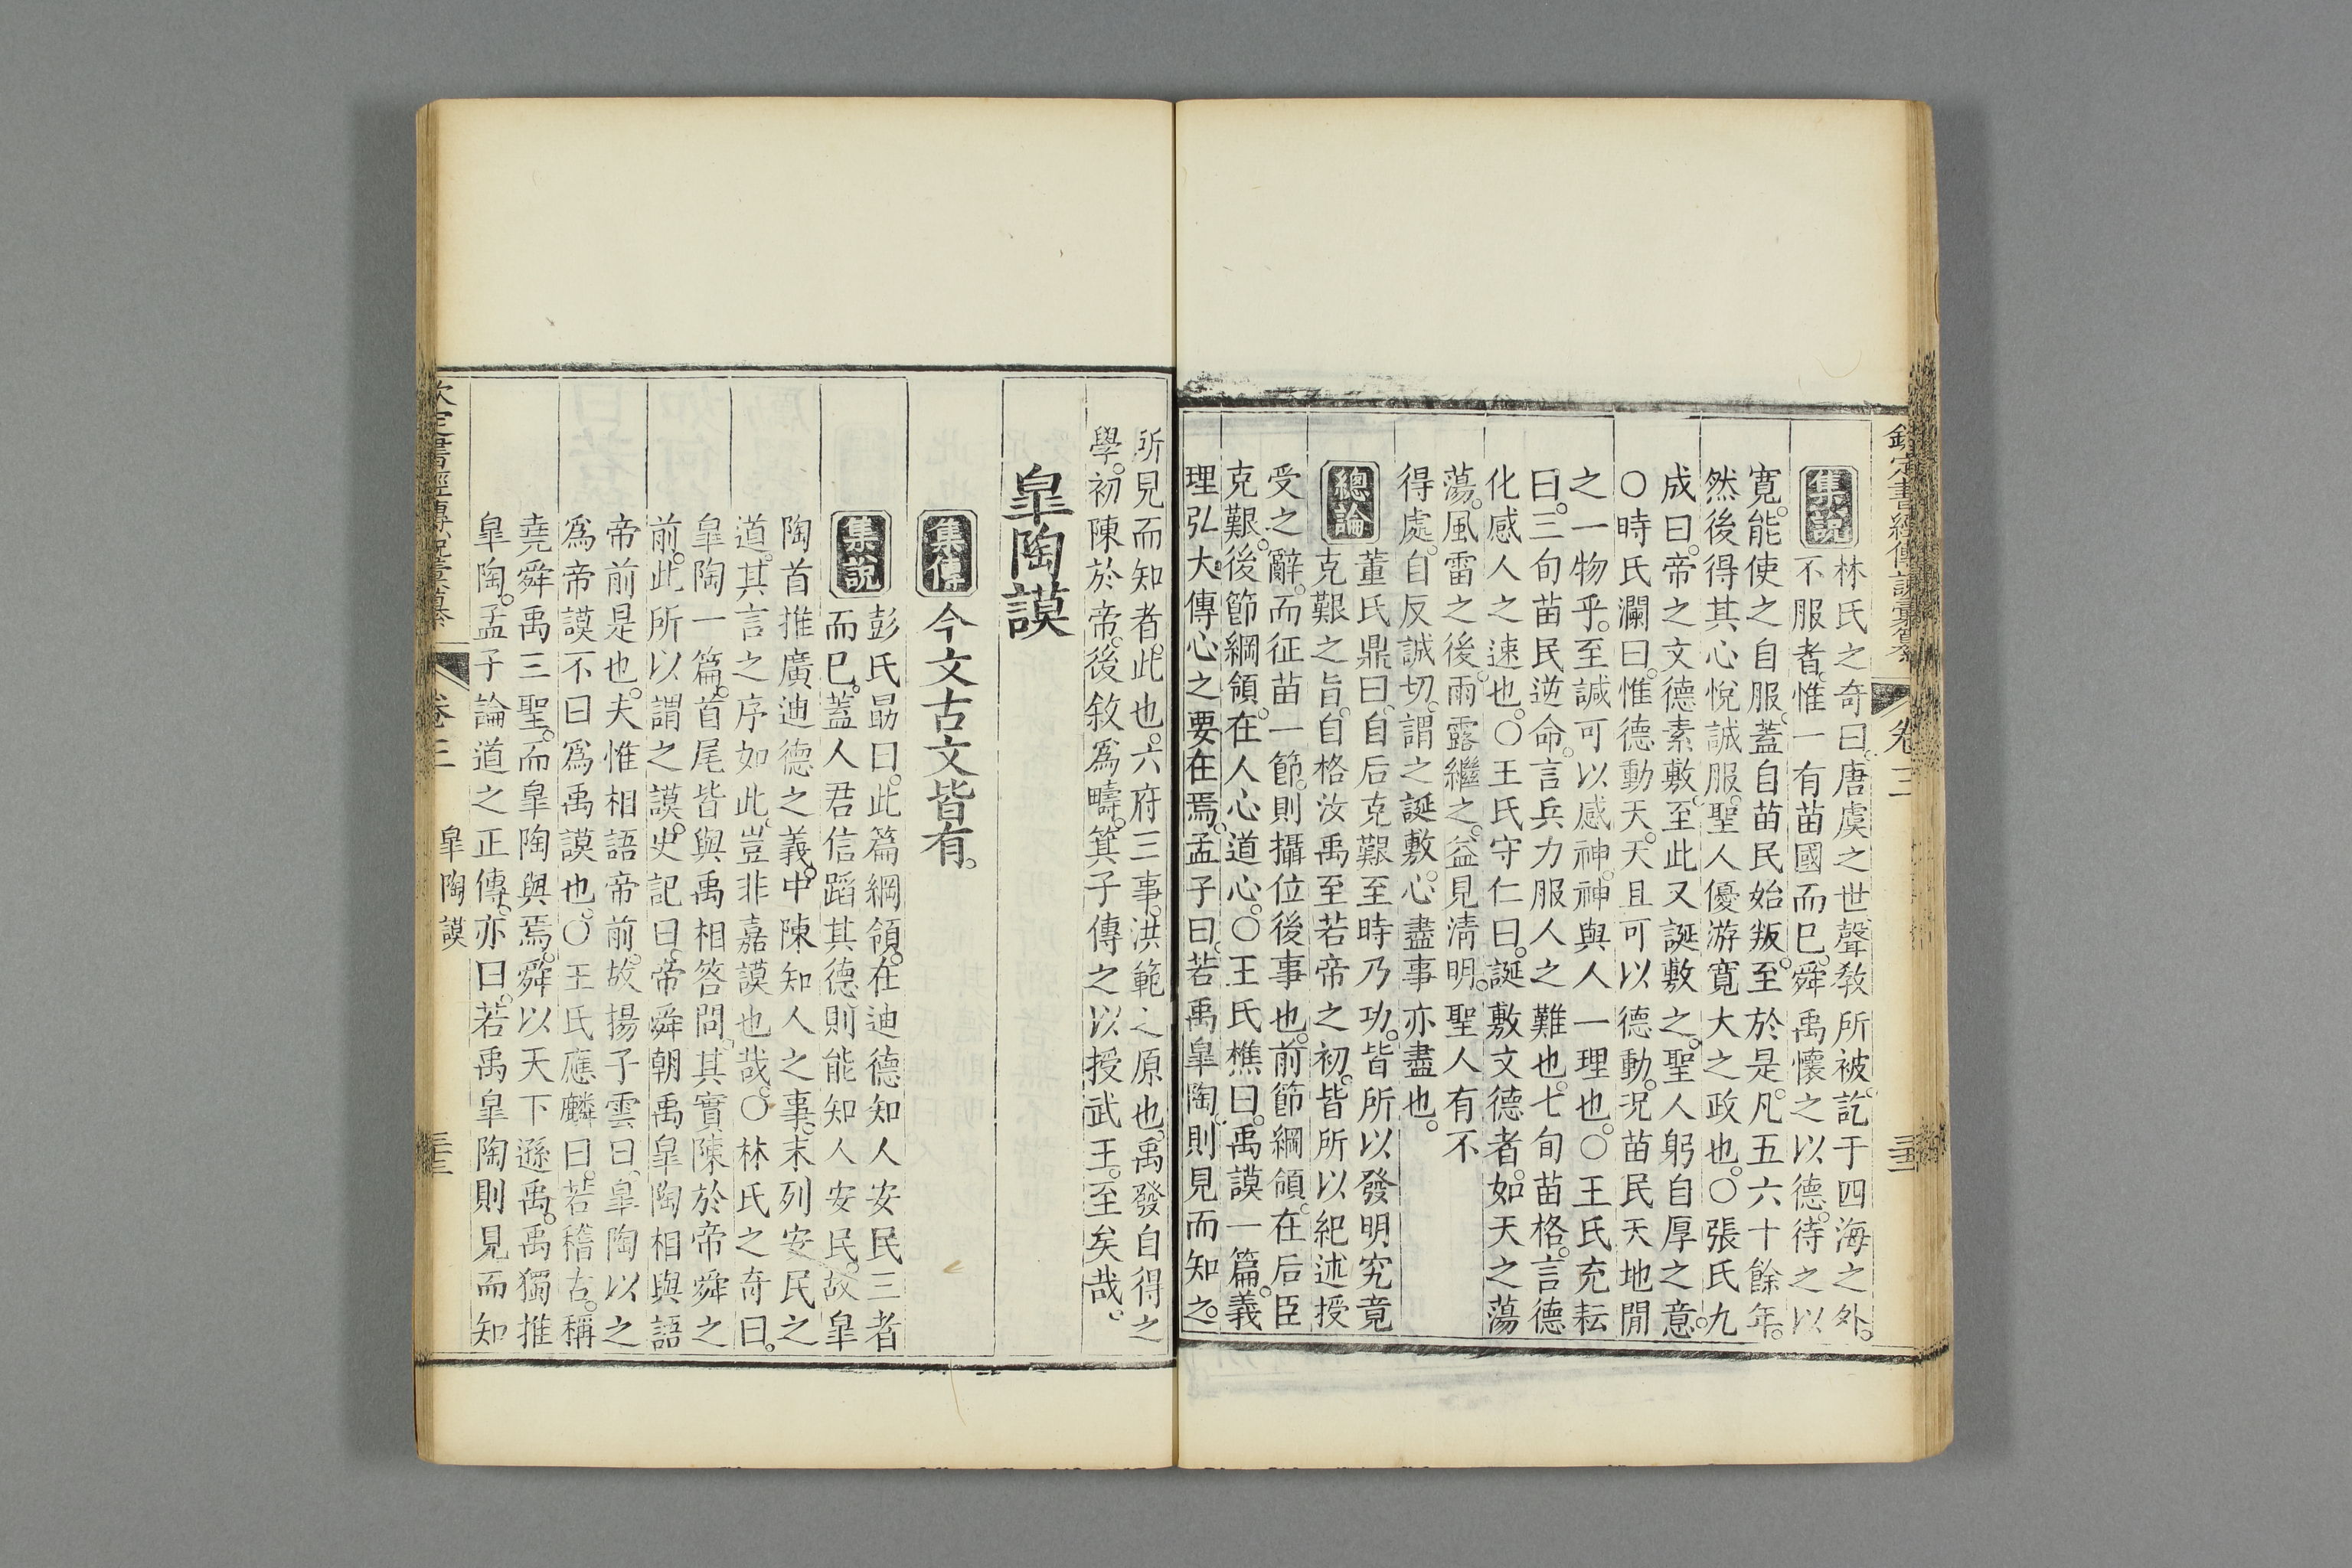 欽定書經傳說彙纂 卷三
集說
林氏之奇曰唐虞之世聲敎所被訖于四海之外
不服者惟一有苗國而已舜禹懷之以德待之以
寬能使之自服蓋自苗民始叛至於是凡五六十餘年
然後得其心悅誠服聖人優游寬大之政也〇張氏九
成曰帝之文德素敷至此又誕敷之聖人躬自厚之意
〇時氏瀾曰惟德動天天且可以德動況苗民天地閒
之一物乎至諴可以感神神與人一理也〇王氏充耘
曰三旬苗民逆命言兵力服人之難也七旬苗格言德
化感人之速也〇王氏守仁曰誕敷文德者如天之蕩
蕩風雷之後雨露繼之益見淸明聖人有不
得處自反誠切謂之誕敷心盡事亦盡也
總論
董氏鼎曰自后克艱至時乃功皆所以發明究竟
克艱之旨自格汝禹至若帝之初皆所以紀述授
受之辭而征苗一節則攝位後事也前節綱領在后臣
克艱後節綱領在人心道心〇王氏樵曰禹謨一篇義
理弘大傳心之要在焉孟子曰若禹皐陶則見而知之
所見而知者此也六府三事洪範之原也禹發自得之
學初陳於帝後敘爲疇箕子傳之以授武王至矣哉
皐陶謨
集傳
今文古文皆有
集說
彭氏勗曰此篇綱領在迪德知人安民三者
而已蓋人君信蹈其德則能知人安民故皐
陶首推廣迪德之義中陳知人之事末列安民之
道其言之序如此豈非嘉謨也哉〇林氏之奇曰
皐陶一篇首尾皆與禹相答問其實陳於帝舜之
前此所以謂之謨史記曰帝舜朝禹皐陶相與語
帝前是也夫惟相語帝前故揚子雲曰皐陶以之
爲帝謨不曰爲禹謨也〇王氏應麟曰若稽古稱
堯舜禹三聖而皐陶與焉舜以天下遜禹禹獨推
皐陶孟子論道之正傳亦曰若禹皐陶則見而知
欽定書經傳說彙纂 卷三 皐陶謨